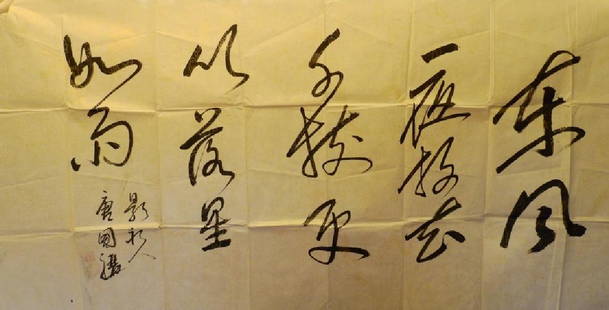 东风
夜放花
千树更
吹落星
如雨
影视人
唐国强